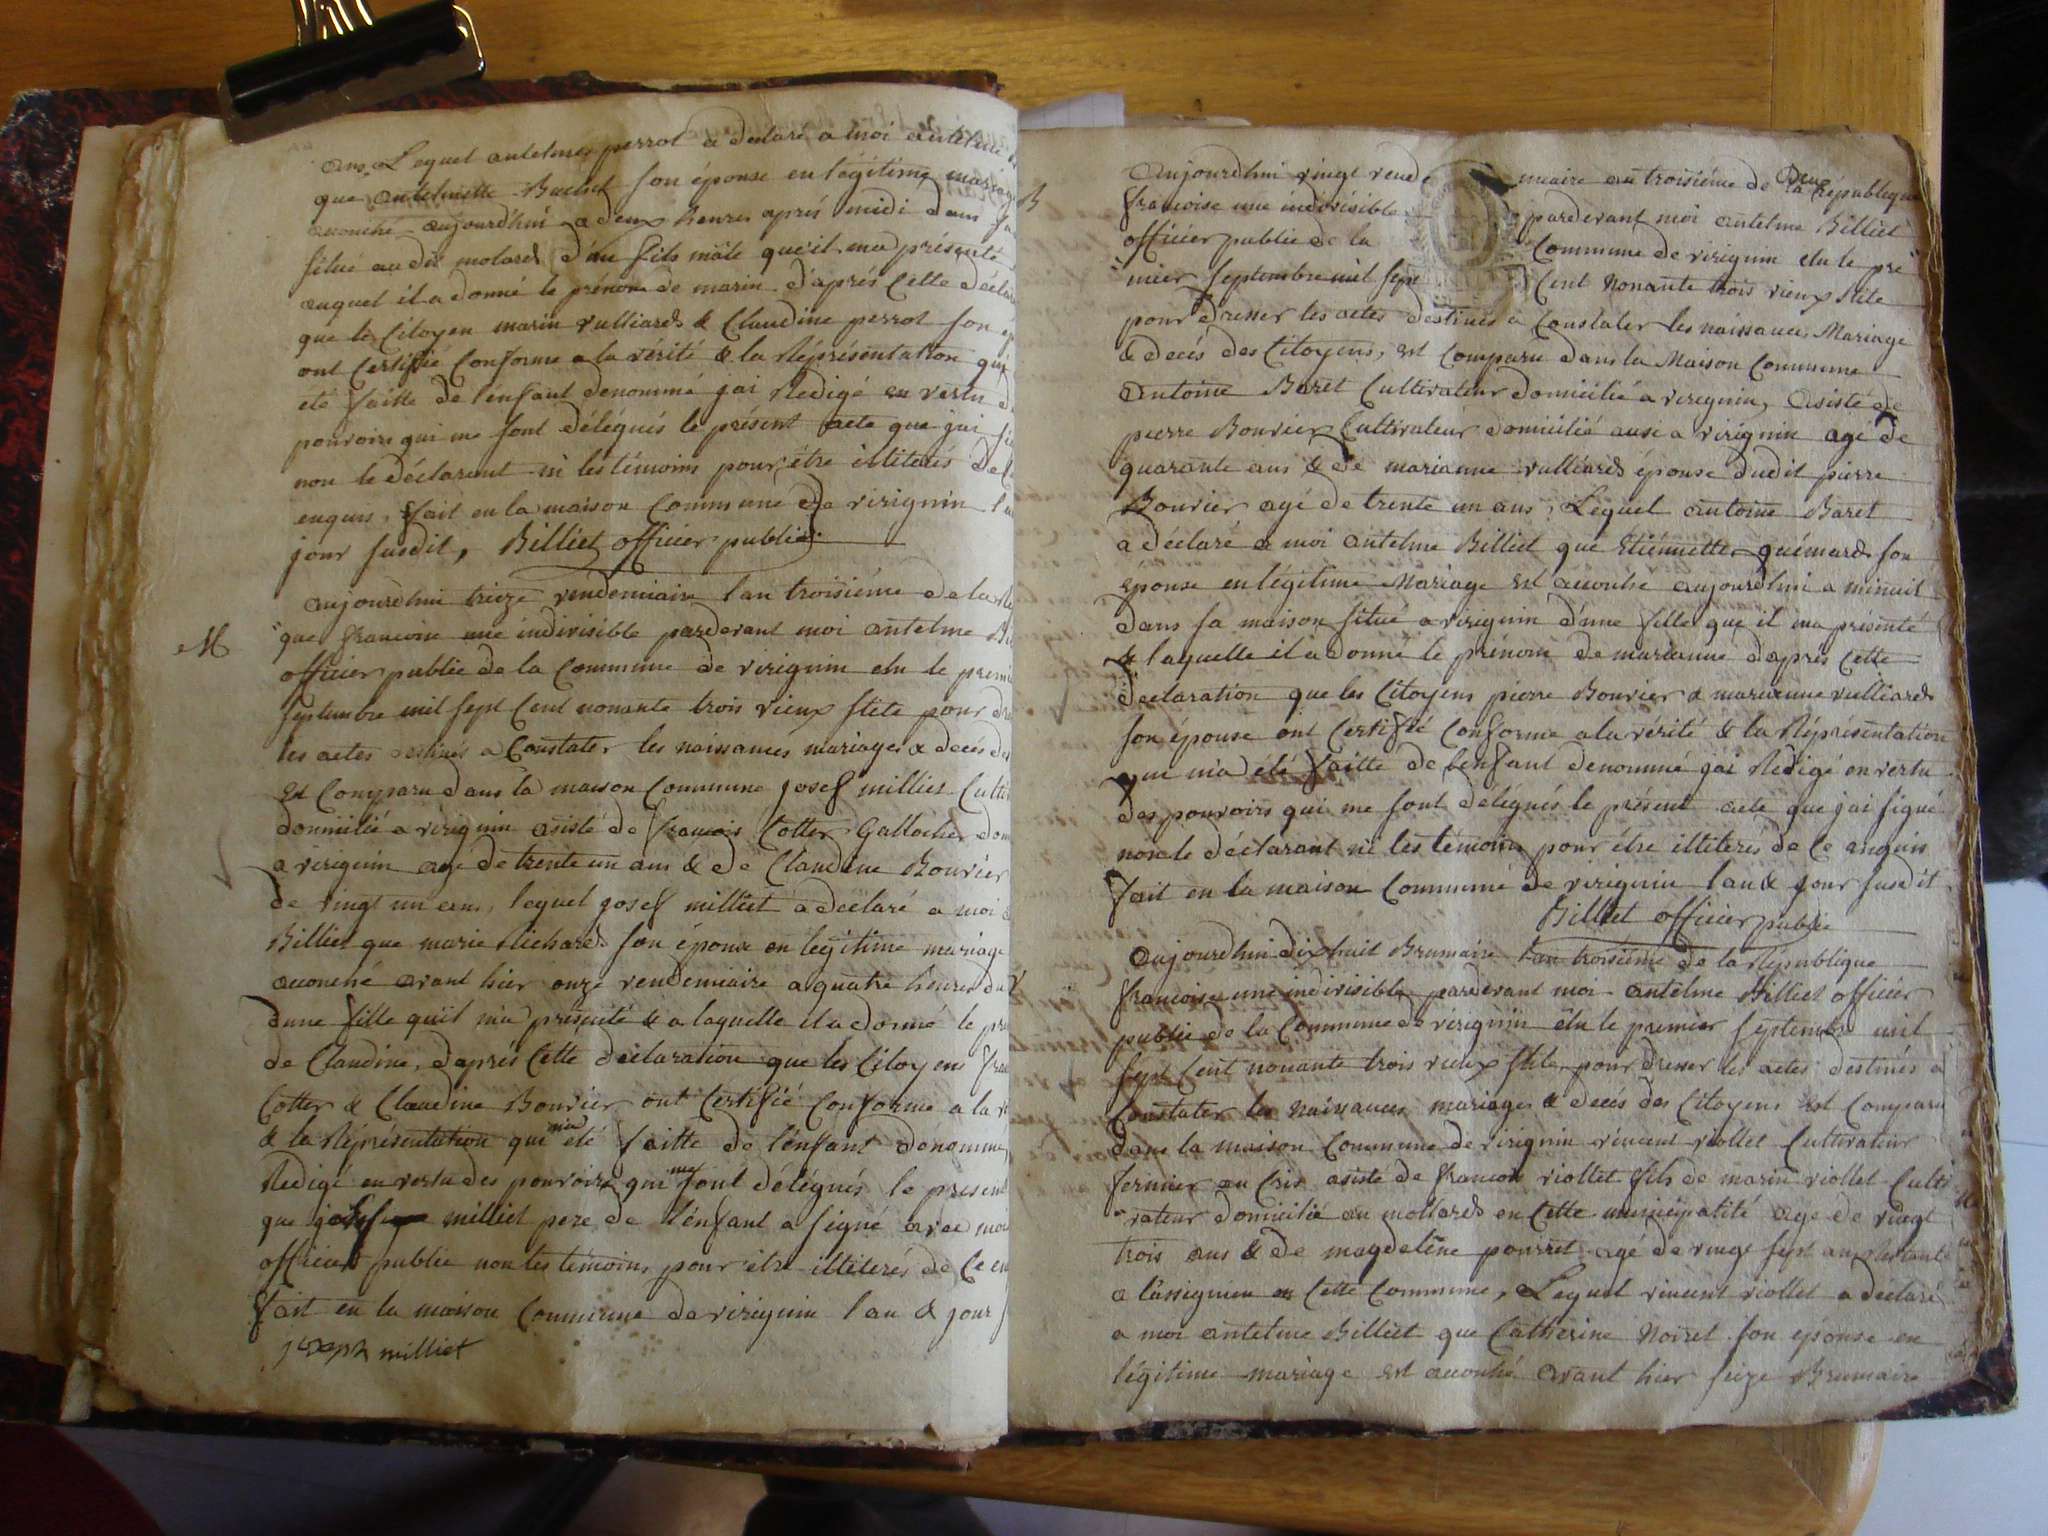 ans, Lequel antelme perrot a déclaré a moi antelme
que antelmette Buchet son épouse en légitime mariage
accouché aujourdhui a deux heures aprés midi dans sa
situé au dit molards d'un fils mâle qu'il ma présenté
auquel il a donné le prénom de marin d'aprés Cette décla
que les Citoyens marin vulliards & Claudine perrot son
ont Certiffié Conforme a la vérité & la Réprésentation qui
été faitte de l'enfant denommé jai Redigé en vertu d
pouvoirs qui me sont délégués le présent acte que jai
non le déclarant ni les témoins pour être illiterés de
enquis, fait en la maison Commune de virignin l
jour susdit, Billiet officier public
aujourdhui treize vendemiaire l'an troisième de la Ré
M
que francoise une indivisible pardevant moi antelme B
officier public de la Commune de virignin elu le premi
septembre mil sept Cent nonante trois vieux stile pour
les actes destinés a Constater les naissances mariages & decés de
est Comparu dans la maison Commune josef milliet Culti
domicilié a virignin asisté de francois Cotter Gallocher dom
a virignin agé de trente un ans & de Claudine Bouvier
de vingt un ans, lequel josef milliet a déclaré a moi
Billiet que marie Richards son épouse en légitime mariage
accouché avant hier onze vendemiaire a quatre heures du
dune fille quil ma présenté & a laquelle il a donné le pr
de Claudine, daprés Cette déclaration que les Citoyens fra
Cotter & Claudine Bouvier ont Certifié Conforme a la v
& la Réprésentation qui ma été faitte de l'enfant denommé
Redigé en vertu des pouvoirs qui me sont délégués le present
que josef milliet pere de l'enfant a signé avec moi
officier public non les témoins pour être illiterés de Ce en
fait en la maison Commune de virignin l'an & jour
joseph milliet
B
aujourdhui vingt vende miaire an troisiéme de la république
francoise une indivisible pardevant moi antelme Billiet
officier public de la Commune de virignin elu le pre
mier septembre mil sept Cent Nonante trois vieux stile
pour dresser les actes destinés a Constater les naissances, Mariage
& decés des Citoyens, est Comparu dans la Maison Commune
antoine Baret Cultivateur domicilié a virignin, asisté de
pierre Bouvier Cultivateur domicilié ausi a virignin agé de
quarante ans & de marianne vulliards épouse dudit pierre
Bouvier agé de trente un ans, Lequel antoine Baret
a déclaré a moi antelme Billiet que Etiennette guémards son
épouse en légitime Mariage est accouché aujourdhui a minuit
dans sa maison situé a virignin d'une fille que il ma présenté
& laquelle il a donné le prénom de marianne daprés Cette
déclaration que les Citoyens pierre Bouvier & marianne vulliards
son épouse ont Certifié Conforme a la vérité & la Réprésentation
qui m'a eté faitte de l'enfant denommé jai Redigé en vertu
des pouvoirs qui me sont délégués le présent acte que jai signé
non le déclarant ni les témoins pour être illiterés de Ce enquis
fait en la maison Commune de virignin l'an & jour susdit
Billiet officier public
aujourdhui dix huit Brumaire l'an troisiéme de la République
francoise une indivisible pardevant moi antelme Billiet officier
public de la Commune de virignin élu le premier septembre mil
sept Cent nonante trois vieux stile, pour dresser les actes destinés a
Constater les naissances mariages & decés des Citoyens est Comparu
dans la maison Commune de virignin vincent viollet Cultivateur
fermier au Cris asisté de francois viollet fils de marin viollet Culti
vateur domicilié au mollards en Cette municipalité agé de vingt
trois ans & de magdeleine pourret agé de vingt sept ans restante
a lassignieu en Cette Commune, Lequel vincent viollet a déclaré
a moi antelme Billiet que Catherine Noiret son épouse en
légitime mariage est accouché avant hier seize Brumaire